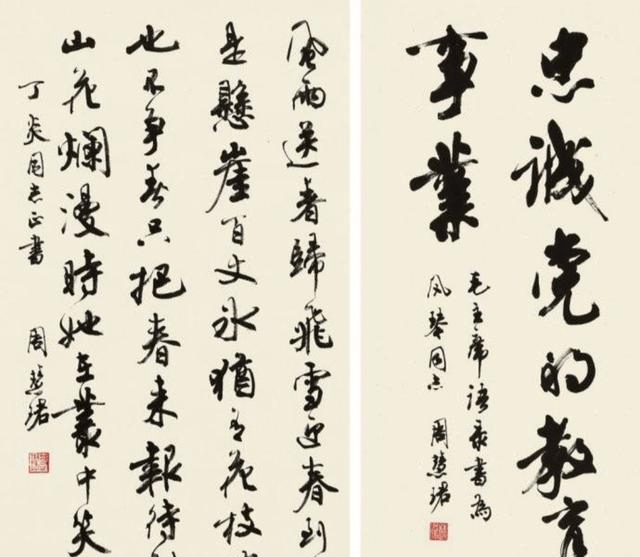 風雨送春歸飛雪迎春到
是懸崖百丈冰猶有花枝
也不争春只把春来報待
山花爛漫時她在叢中笑
丁炎同志正書 周慧珺
忠诚党的教育
事業
毛主席语录書為
凤琴同志 周慧珺